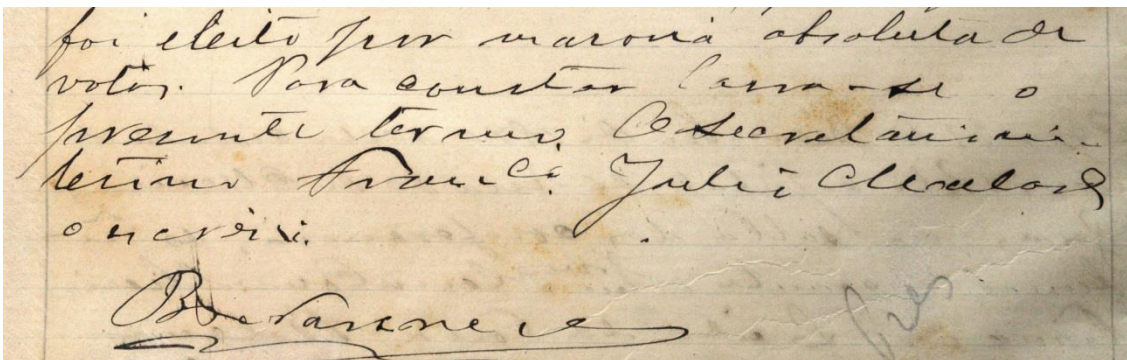 foi eleito por maioria absoluta de
votos. Para constar lavra-se o
presente termo. O secretario in-
terino Franc.º Julio
o escrevi.